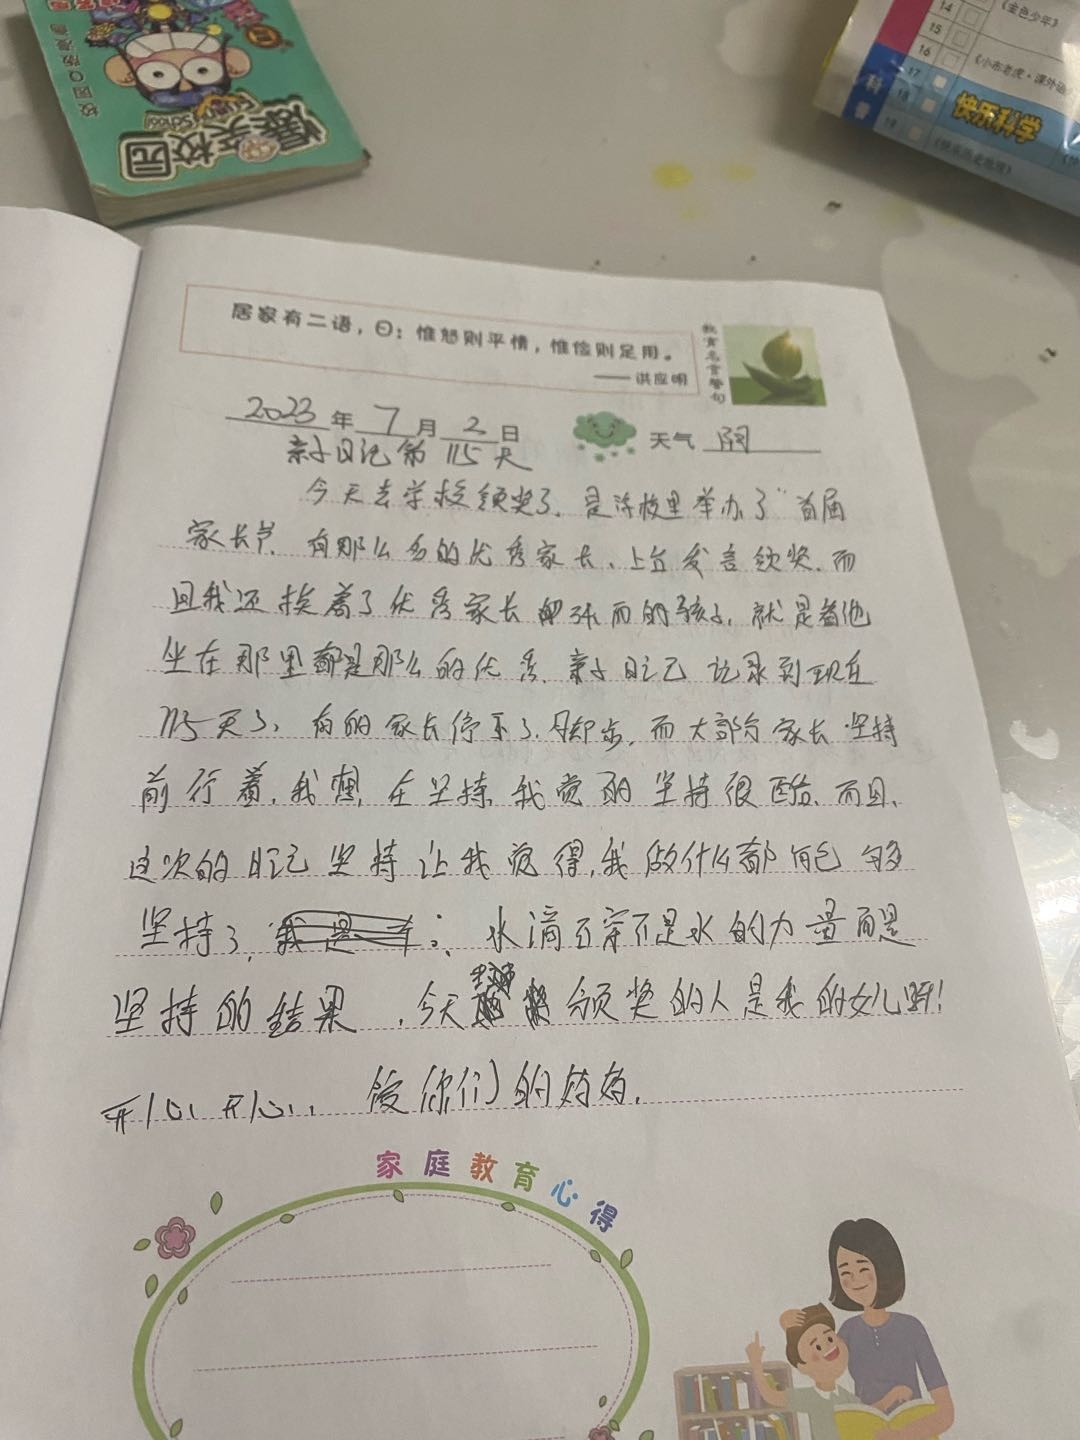 校园Q版漫画
爆笑校园
School
14
15
16
17
18
19
《金色少年》
《小布老虎·课外
科普
快乐科学
居家有二语，曰：惟恕则平情，惟俭则足用。
——洪应明
教育名言警句
2023年7月2日
天气 阴
亲子日记第115天
今天去学校领奖了，是学校里举办了“首届
家长节，有那么多的优秀家长，上台发言领奖，而
且我还挨着了优秀家长 而的孩子，就是看他
坐在那里都是那么的优秀，亲子日记 记录到现在
115天了，有的家长停下了脚步，而大部分家长坚持
前行着，我想，在坚持，我觉的坚持很酷，而且，
这次的日记坚持让我觉得，我做什么都能够
坚持了，水滴石穿不是水的力量而是
坚持的结果，今天 领奖的人是我的女儿呀！
开心，开心，，
你们的妈妈，
家庭教育心得